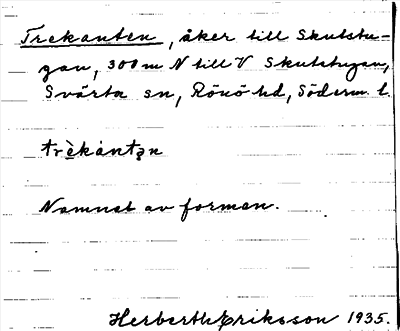 Trekanten, åker till Skutstu-
gan, 300 m N till V Skutstugan,
Svärta sn, Rönö hd, Söderm. l.
trèkántən
Namnet av formen.
Herberth Eriksson 1935.